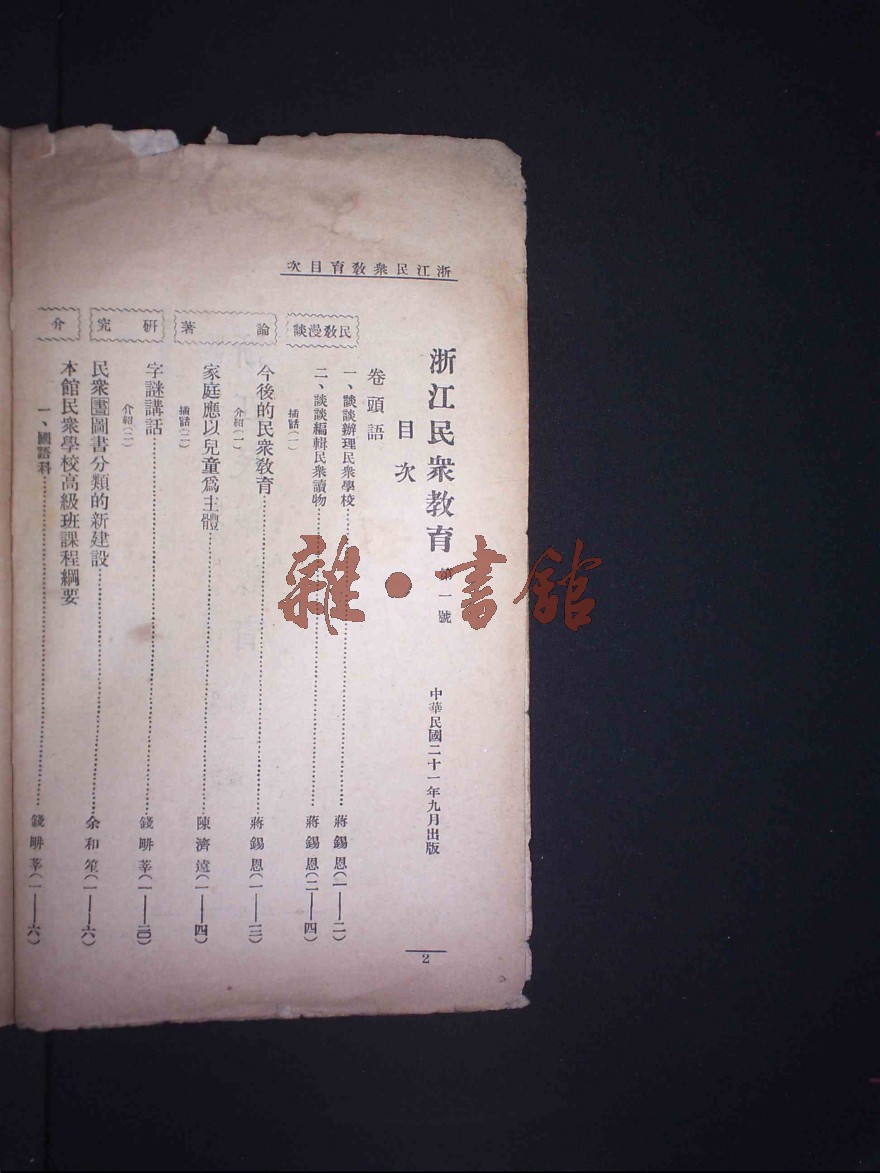 浙江民衆敎育目次
浙江民衆敎育 第一號 中華民國二十一年九月出版
目次
卷頭語
民敎漫談
一、談談辦理民衆學校 蔣錫恩(一——二)
二、談談編輯民衆讀物 蔣錫恩(二——四)
插話(一)
論著
今後的民衆敎育 蔣錫恩(一——三)
介紹(一)
家庭應以兒童爲主體 陳濟遠(一——四)
插話(二)
研究
字謎講話 錢畊莘(一——二〇)
介紹(二)
民衆圕圖書分類的新建設 余和笙(一——六)
介
本館民衆學校高級班課程綱要
一、國語科 錢畊莘(一——六)
2
雜·書館